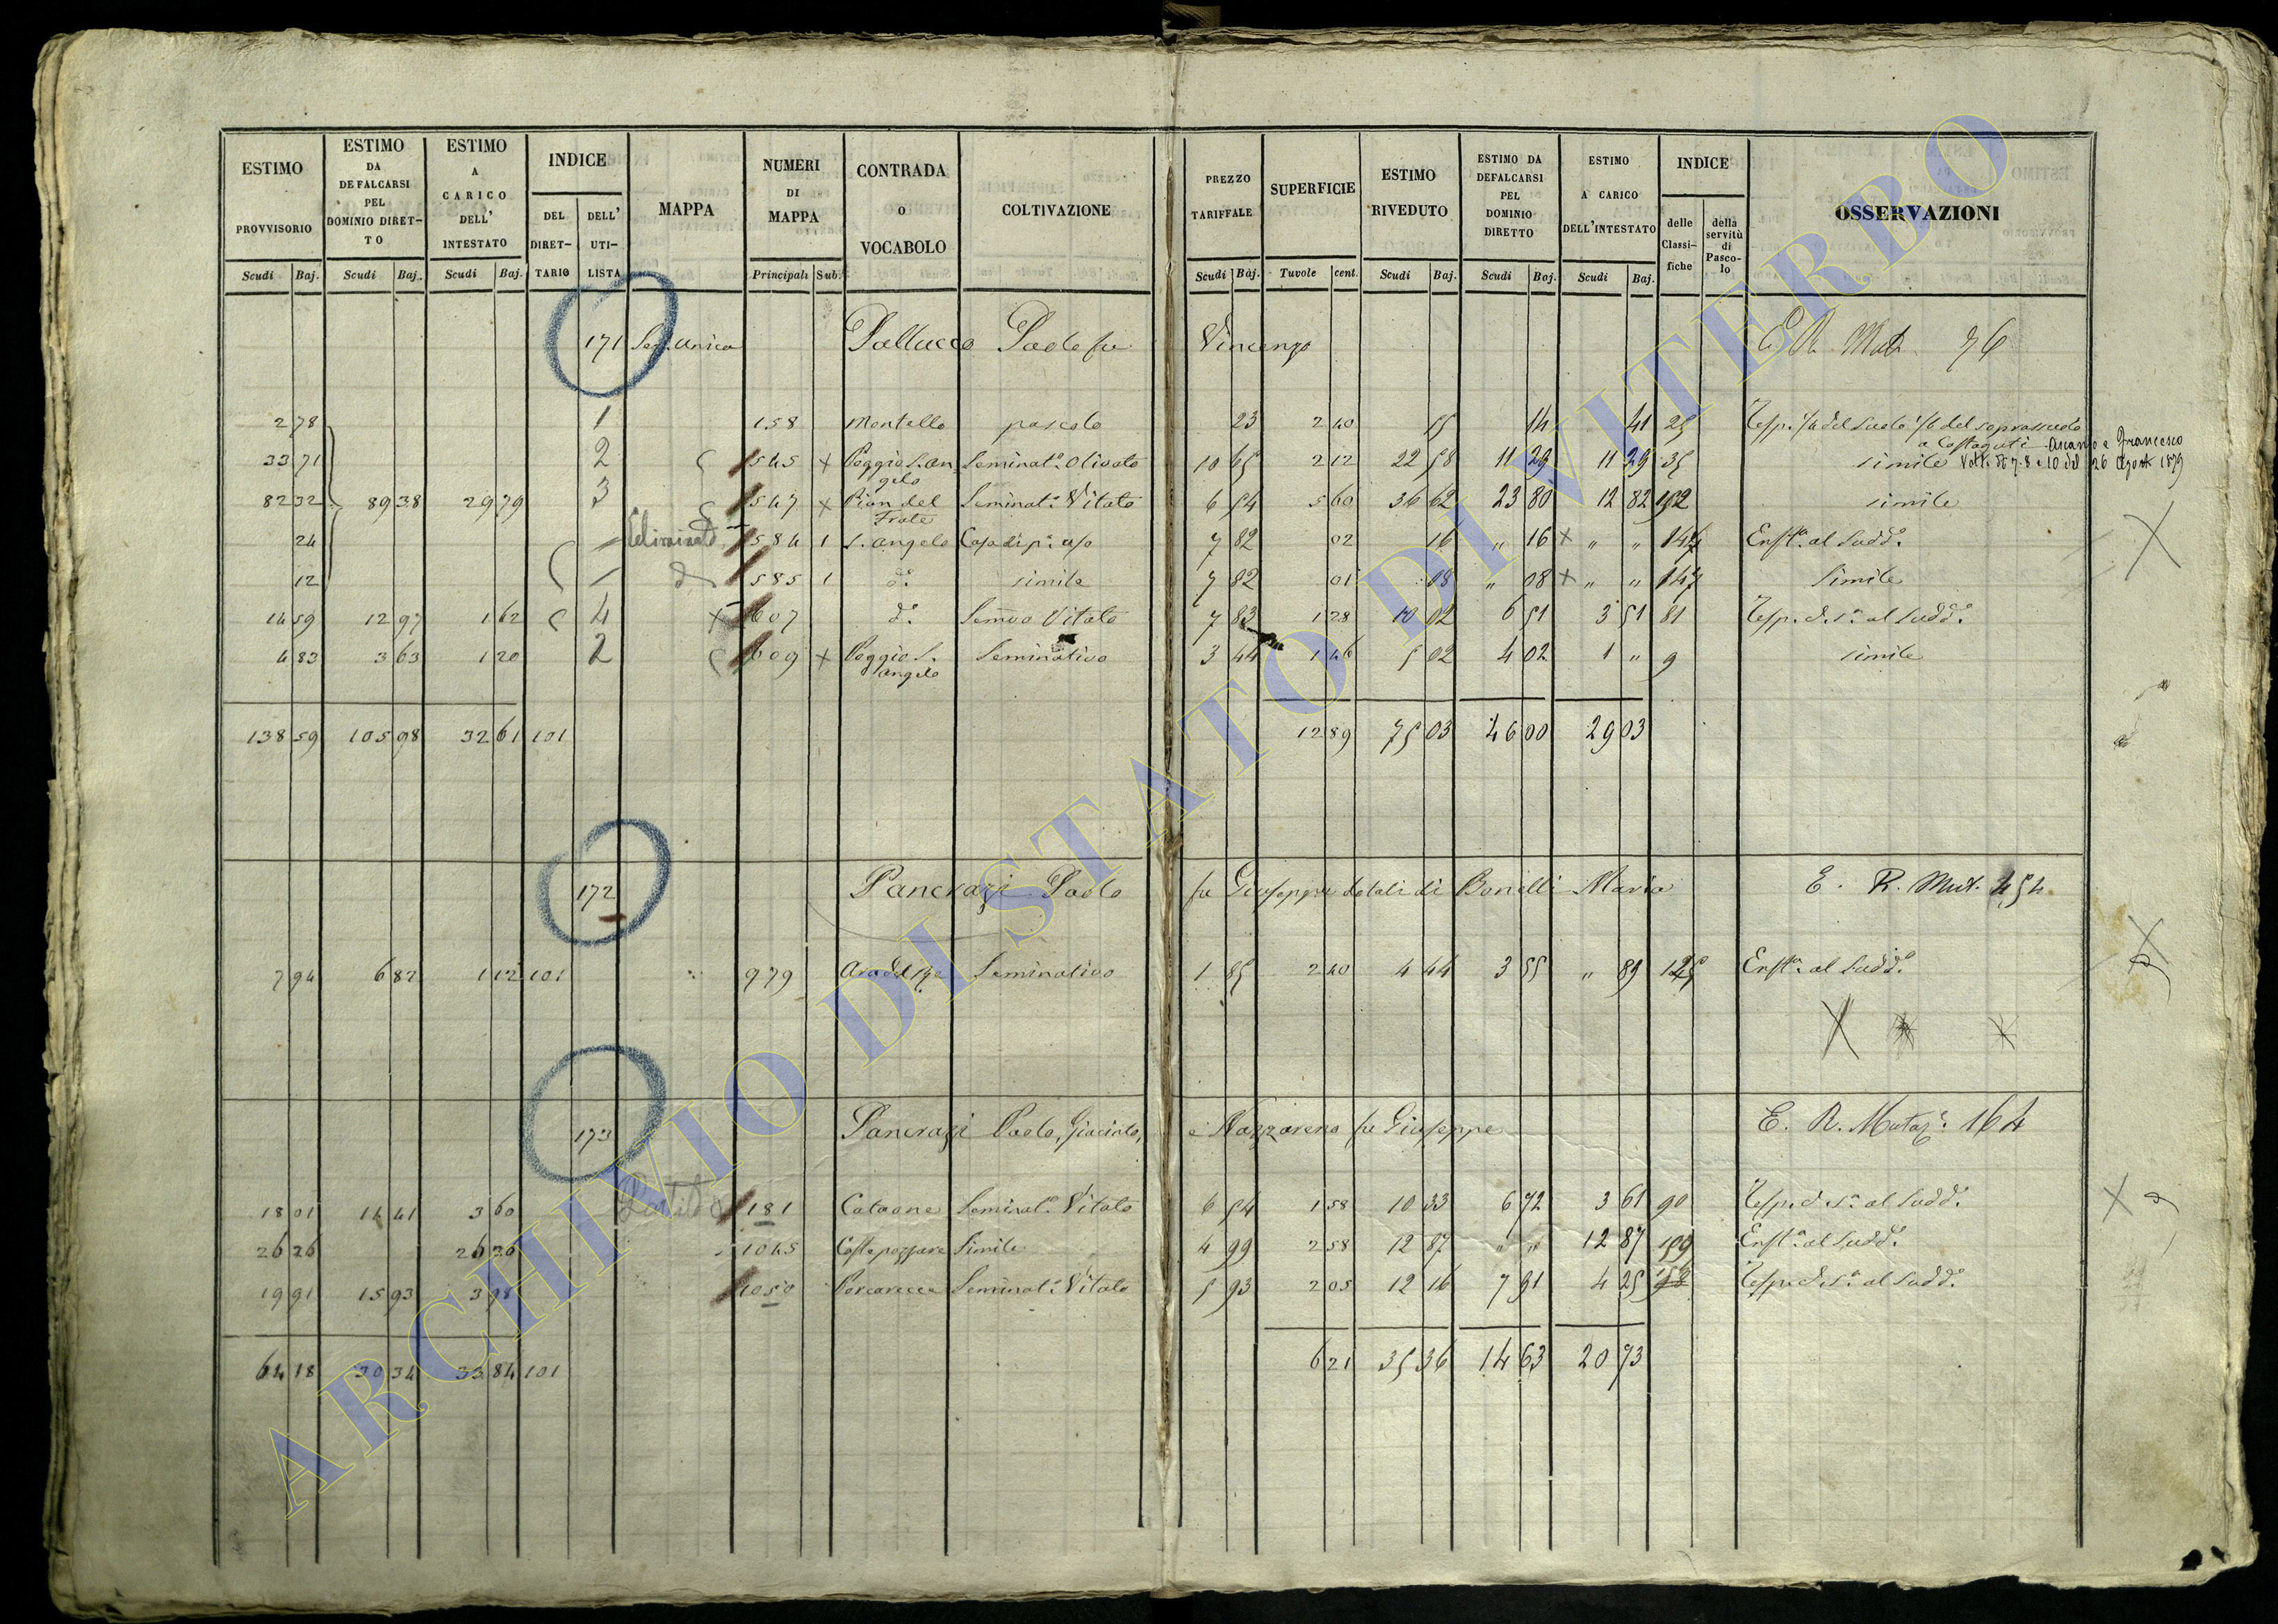 ESTIMO PROVVISORIO Scudi Baj.
ESTIMO DA DEFALCARSI PEL DOMINIO DIRETTO Scudi Baj.
ESTIMO A CARICO DELL' INTESTATO Scudi Baj.
INDICE DEL DIRETTARIO DELL' UTILISTA
MAPPA
NUMERI DI MAPPA Principali Sub.
CONTRADA O VOCABOLO
COLTIVAZIONE
PREZZO TARIFFALE Scudi Baj.
SUPERFICIE Tuvole cent.
ESTIMO RIVEDUTO Scudi Baj.
ESTIMO DA DEFALCARSI PEL DOMINIO DIRETTO Scudi Baj.
ESTIMO A CARICO DELL'INTESTATO Scudi Baj.
INDICE delle Classifiche della servitù di Pascolo
OSSERVAZIONI
171 Sez. Unica Pallucco Paolo fu Vincenzo E. R. Mut. 76
2 78 1 158 Montello pascolo 23 2 40 55 14 41 25 Resp. 1/4 del suolo 1/6 del soprassuolo
a Costaguti Ascanio e Francesco
33 71 2 545 x Poggio S. Angelo Seminat.o Olivato 10 65 2 12 22 58 11 29 11 29 35 simile Volt. di 7. 8 e 10 del 26 Agosto 1879
82 32 89 38 29 79 3 547 x Pian del Frate Seminat.o Vitato 6 54 5 60 36 62 23 80 12 82 192 simile
24 Eliminato 584 1 S. Angelo Casa di p.o uso 7 82 02 16 " 16 x " " 147 Enft.a al Sudd.o
12 585 1 d.o simile 7 82 01 08 " 08 x " " 147 Simile
14 59 12 97 1 62 4 607 d.o Sem.vo Vitato 7 83 1 28 10 02 6 51 3 51 81 Resp. d. s.a al Sudd.o
4 83 3 63 1 20 2 609 x Poggio S. Angelo Seminativo 3 44 1 46 5 02 4 02 1 " 9 simile
138 59 105 98 32 61 101 12 89 75 03 46 00 29 03
172 Pancrazi Paolo fu Giuseppe dotali di Bonelli Maria E. R. Mut. 454
7 94 6 82 1 12 101 979 Seminativo 1 85 2 40 4 44 3 55 " 89 125 Enft.a al Sudd.o
173 Pancrazi Paolo, Giacinto, e Nazzareno fu Giuseppe E. R. Mutaz.e 164
18 01 14 41 3 60 181 Cataone Seminat.o Vitato 6 54 1 58 10 33 6 72 3 61 90 Resp. d. s.a al Sudd.o
26 26 26 26 1045 Costa pozzara Simile 4 99 2 58 12 87 " " 12 87 199 Enft.a al Sudd.o
19 91 15 93 3 98 1050 Porcarecce Seminat.o Vitato 5 93 2 05 12 16 7 91 4 25 Resp. d. s.a al Sudd.o
64 18 30 34 33 84 101 6 21 35 36 14 63 20 73
ARCHIVIO DI STATO DI VITERBO